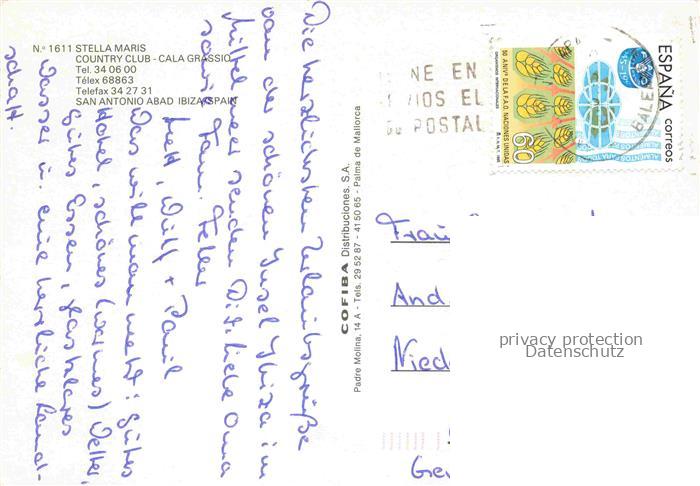 N.º 1611 STELLA MARIS
COUNTRY CLUB - CALA GRASSIO
Tel. 34 06 00
Télex 68863
Telefax 34 27 31
SAN ANTONIO ABAD IBIZA SPAIN
Die herzlichsten Urlaubsgrüße
von der schönen Insel Ybiza im
Mittelmeer senden Dir, liebe Oma
sowie Fam.
Wulf +
Was will man mehr: gutes
Hotel, schönes (warmes) Wetter,
gutes Essen, glasklares
Wasser u. eine herrliche Land-
schaft.
COFIBA Distribuciones, S.A.
Padre Molina, 14 A - Tels. 29 52 87 - 41 50 65 - Palma de Mallorca
NE EN
VIOS EL
POSTAL
50 ANIVº DE LA F.A.O. NACIONES UNIDAS
60
ESPAÑA correos
BALE
Frau
And
Nied
Ge
privacy protection
Datenschutz